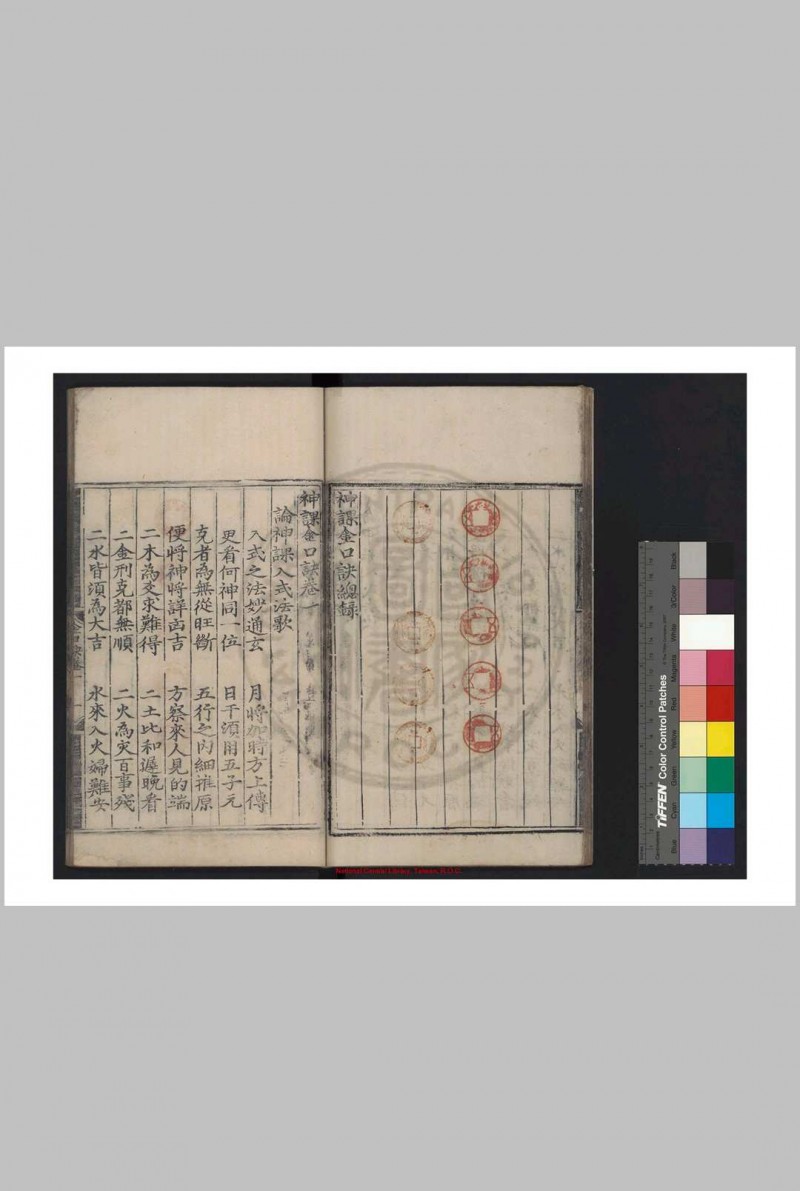 神課金口訣總錄
神課金口訣卷一
論神課入式法歌
入式之法妙通玄　月將加時方上傳
更看何神同一位　日干須用五子元
克者為無從旺斷　五行之內細推原
便將神將詳凶吉　方察來人見的端
二木為爻求難得　二土比和遲晚看
二金刑克都無順　二火為灾百事殘
二水皆須為大吉　水來入火婦難安
National Central Library, Taiwan, R.O.C.
TIFFEN Color Control Patches
Blue
Cyan
Green
Yellow
Red
Magenta
White
3/Color
Black